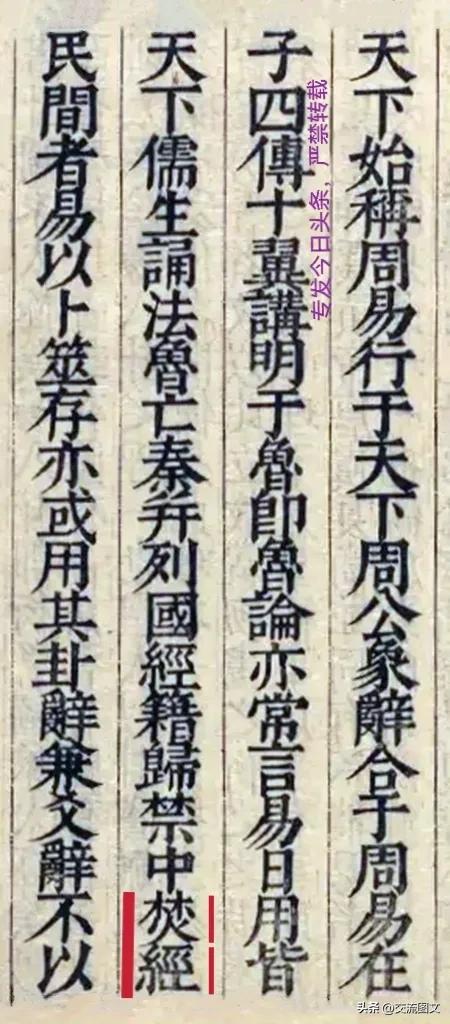 天下始稱周易行于天下周公象辭合于周易在
子四傳十翼講明于魯即魯論亦常言易日用皆
天下儒生誦法魯亡秦并列國經籍歸禁中焚經
民間者易以卜筮存亦或用其卦辭兼爻辭不以
专发今日头条，严禁转载
头条 @交流图文